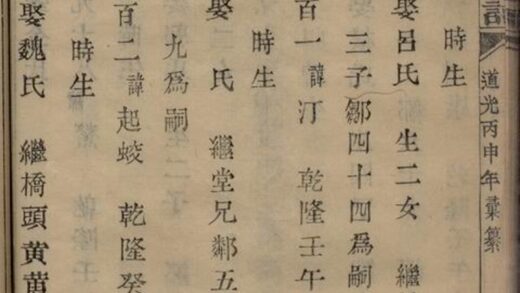 道光丙申年彙纂
時生
娶呂氏 生二女 繼
三子鄒四十四爲嗣
百一諱汀 乾隆壬午
時生
娶 氏 繼堂兄鄰五
九爲嗣
百二諱起蛟 乾隆癸
時生
娶魏氏 繼橋頭黄